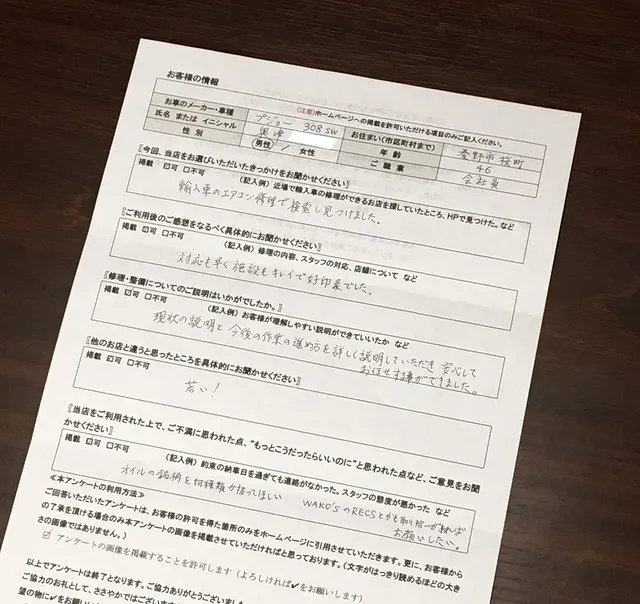 お客様の情報
(注意)ホームページへの掲載を許可いただける項目のみご記入ください。
お車のメーカー・車種 プジョー 308SW お住まい(市区町村まで) 秦野市桜町
氏名 または イニシャル 年 齢 46
性 別 男性 / 女性 ご 職 業 会社員
『今回、当店をお選びいただいたきっかけをお聞かせください』
掲載 ☑可 □不可 (記入例) 近場で輸入車の修理ができるお店を探していたところ、HPで見つけた。など
輸入車のエアコン修理で検索し見つけました。
『ご利用後のご感想をなるべく具体的にお聞かせください』
掲載 ☑可 □不可 (記入例) 修理の内容、スタッフの対応、店舗について など
対応も早く施設もキレイで好印象でした。
『修理・整備についてのご説明はいかがでしたか。』
掲載 ☑可 □不可 (記入例) お客様が理解しやすい説明ができていいたか など
現状の説明と今後の作業の進め方を詳しく説明していただき 安心して
お任せする事ができました。
『他のお店と違うと思ったところを具体的にお聞かせください』
掲載 ☑可 □不可
若い!
『当店をご利用された上で、ご不満に思われた点、“もっとこうだったらいいのに”と思われた点など、ご意見をお聞
かせください』
掲載 ☑可 □不可 (記入例) 約束の納車日を過ぎても連絡がなかった。スタッフの態度が悪かった など
オイルの銘柄を何種類か扱ってほしい、 WAKO'SのRECSとかも取り扱いがあれば
お願いしたい。
≪本アンケートの利用方法≫
ご回答いただいたアンケートは、お客様の許可を得た箇所のみをホームページに引用させていただきます。更に、お客様から
の了承を頂ける場合のみ本アンケートの画像を掲載させていただければと思っております。(文字がはっきり読めるほどの大き
さの画像ではありません。)
☑ アンケートの画像を掲載することを許可します (よろしければ✔をお願いします)
以上でアンケートは終了となります。ご協力ありがとうございまし
ご協力のお礼として、ささやかではございます
望の物に✔をお願い